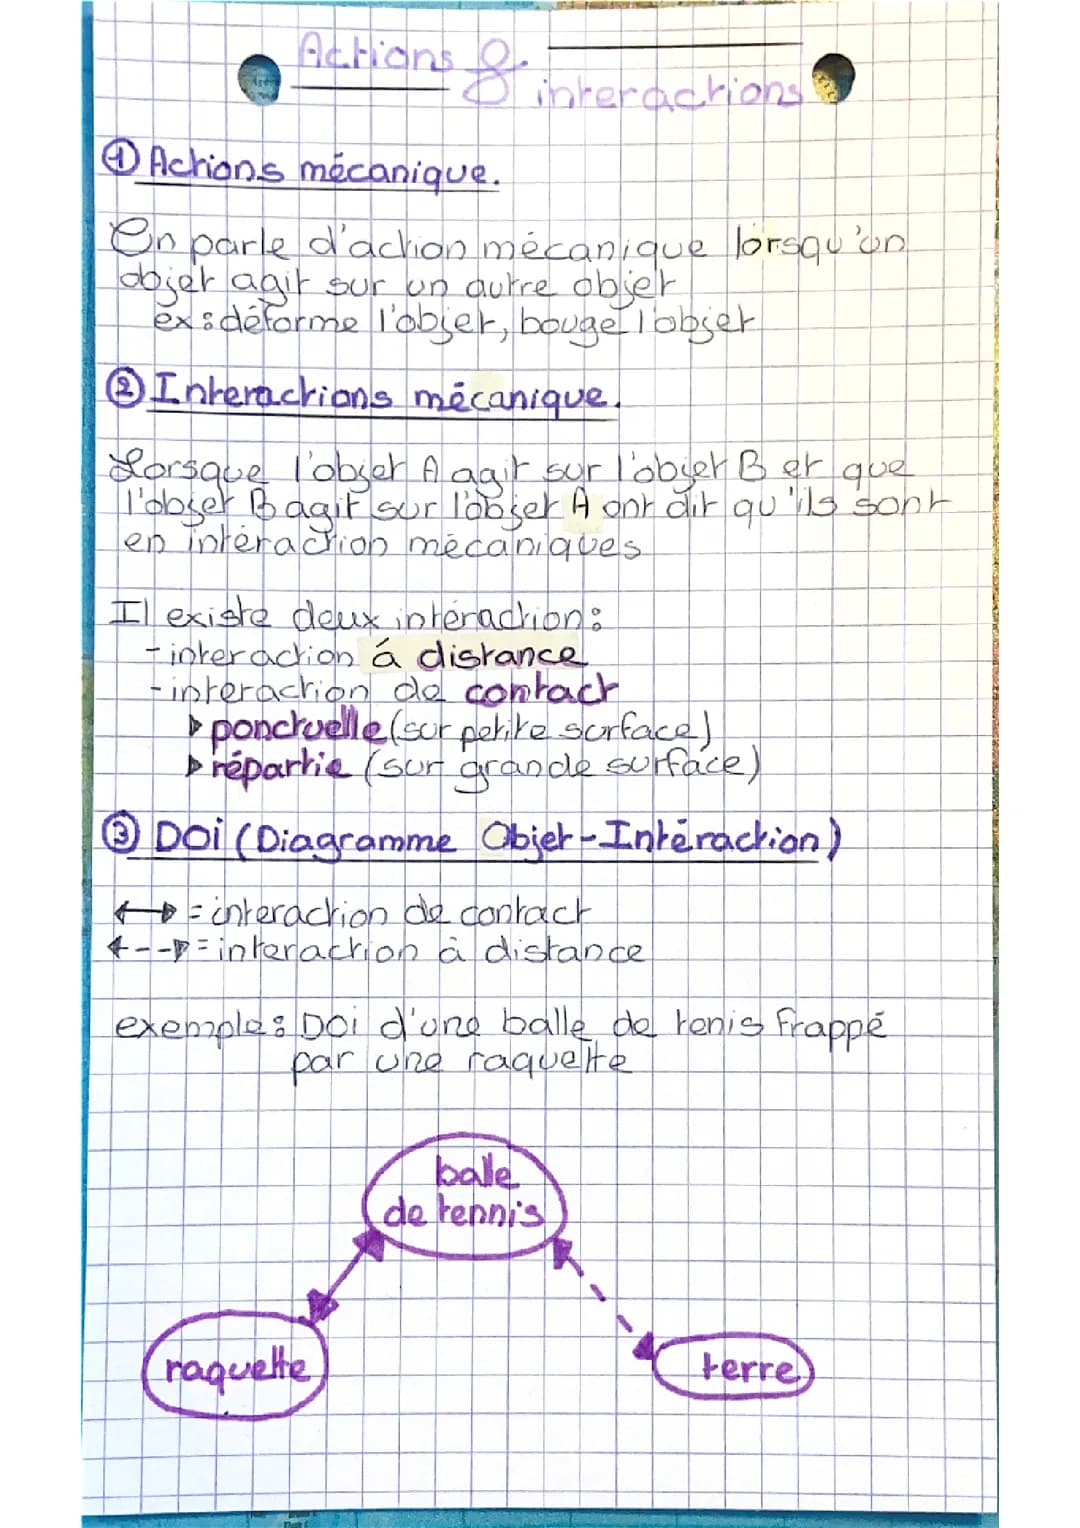 Actions &
interactions
① Actions mécanique.
On parle d'action mécanique lorsqu'un
objet agit sur un autre objet
ex : déforme l'objet, bouge l'objet
② Interactions mécanique.
Lorsque l'objet A agit sur l'objet B et que
l'objet B agit sur l'objet A ont dit qu'ils sont
en intéraction mécaniques
Il existe deux intéraction :
- interaction á distance
- interaction de contact
▸ ponctuelle (sur petite surface)
▸ répartie (sur grande surface)
③ DOi (Diagramme Objet-Intéraction)
↔ = interaction de contact
←--→ = interaction à distance
exemple : DOi d'une balle de tenis frappé
par une raquette
balle
de tennis
raquette
terre